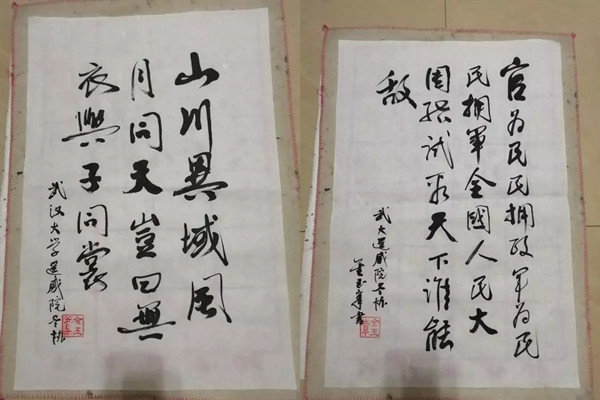 山川異域風
月同天豈曰無
衣與子同裳
武汉大学遥感院老协
官为民民拥政军为民
民拥军全國人民大
團结试看天下谁能
敌
武大遥感院老协